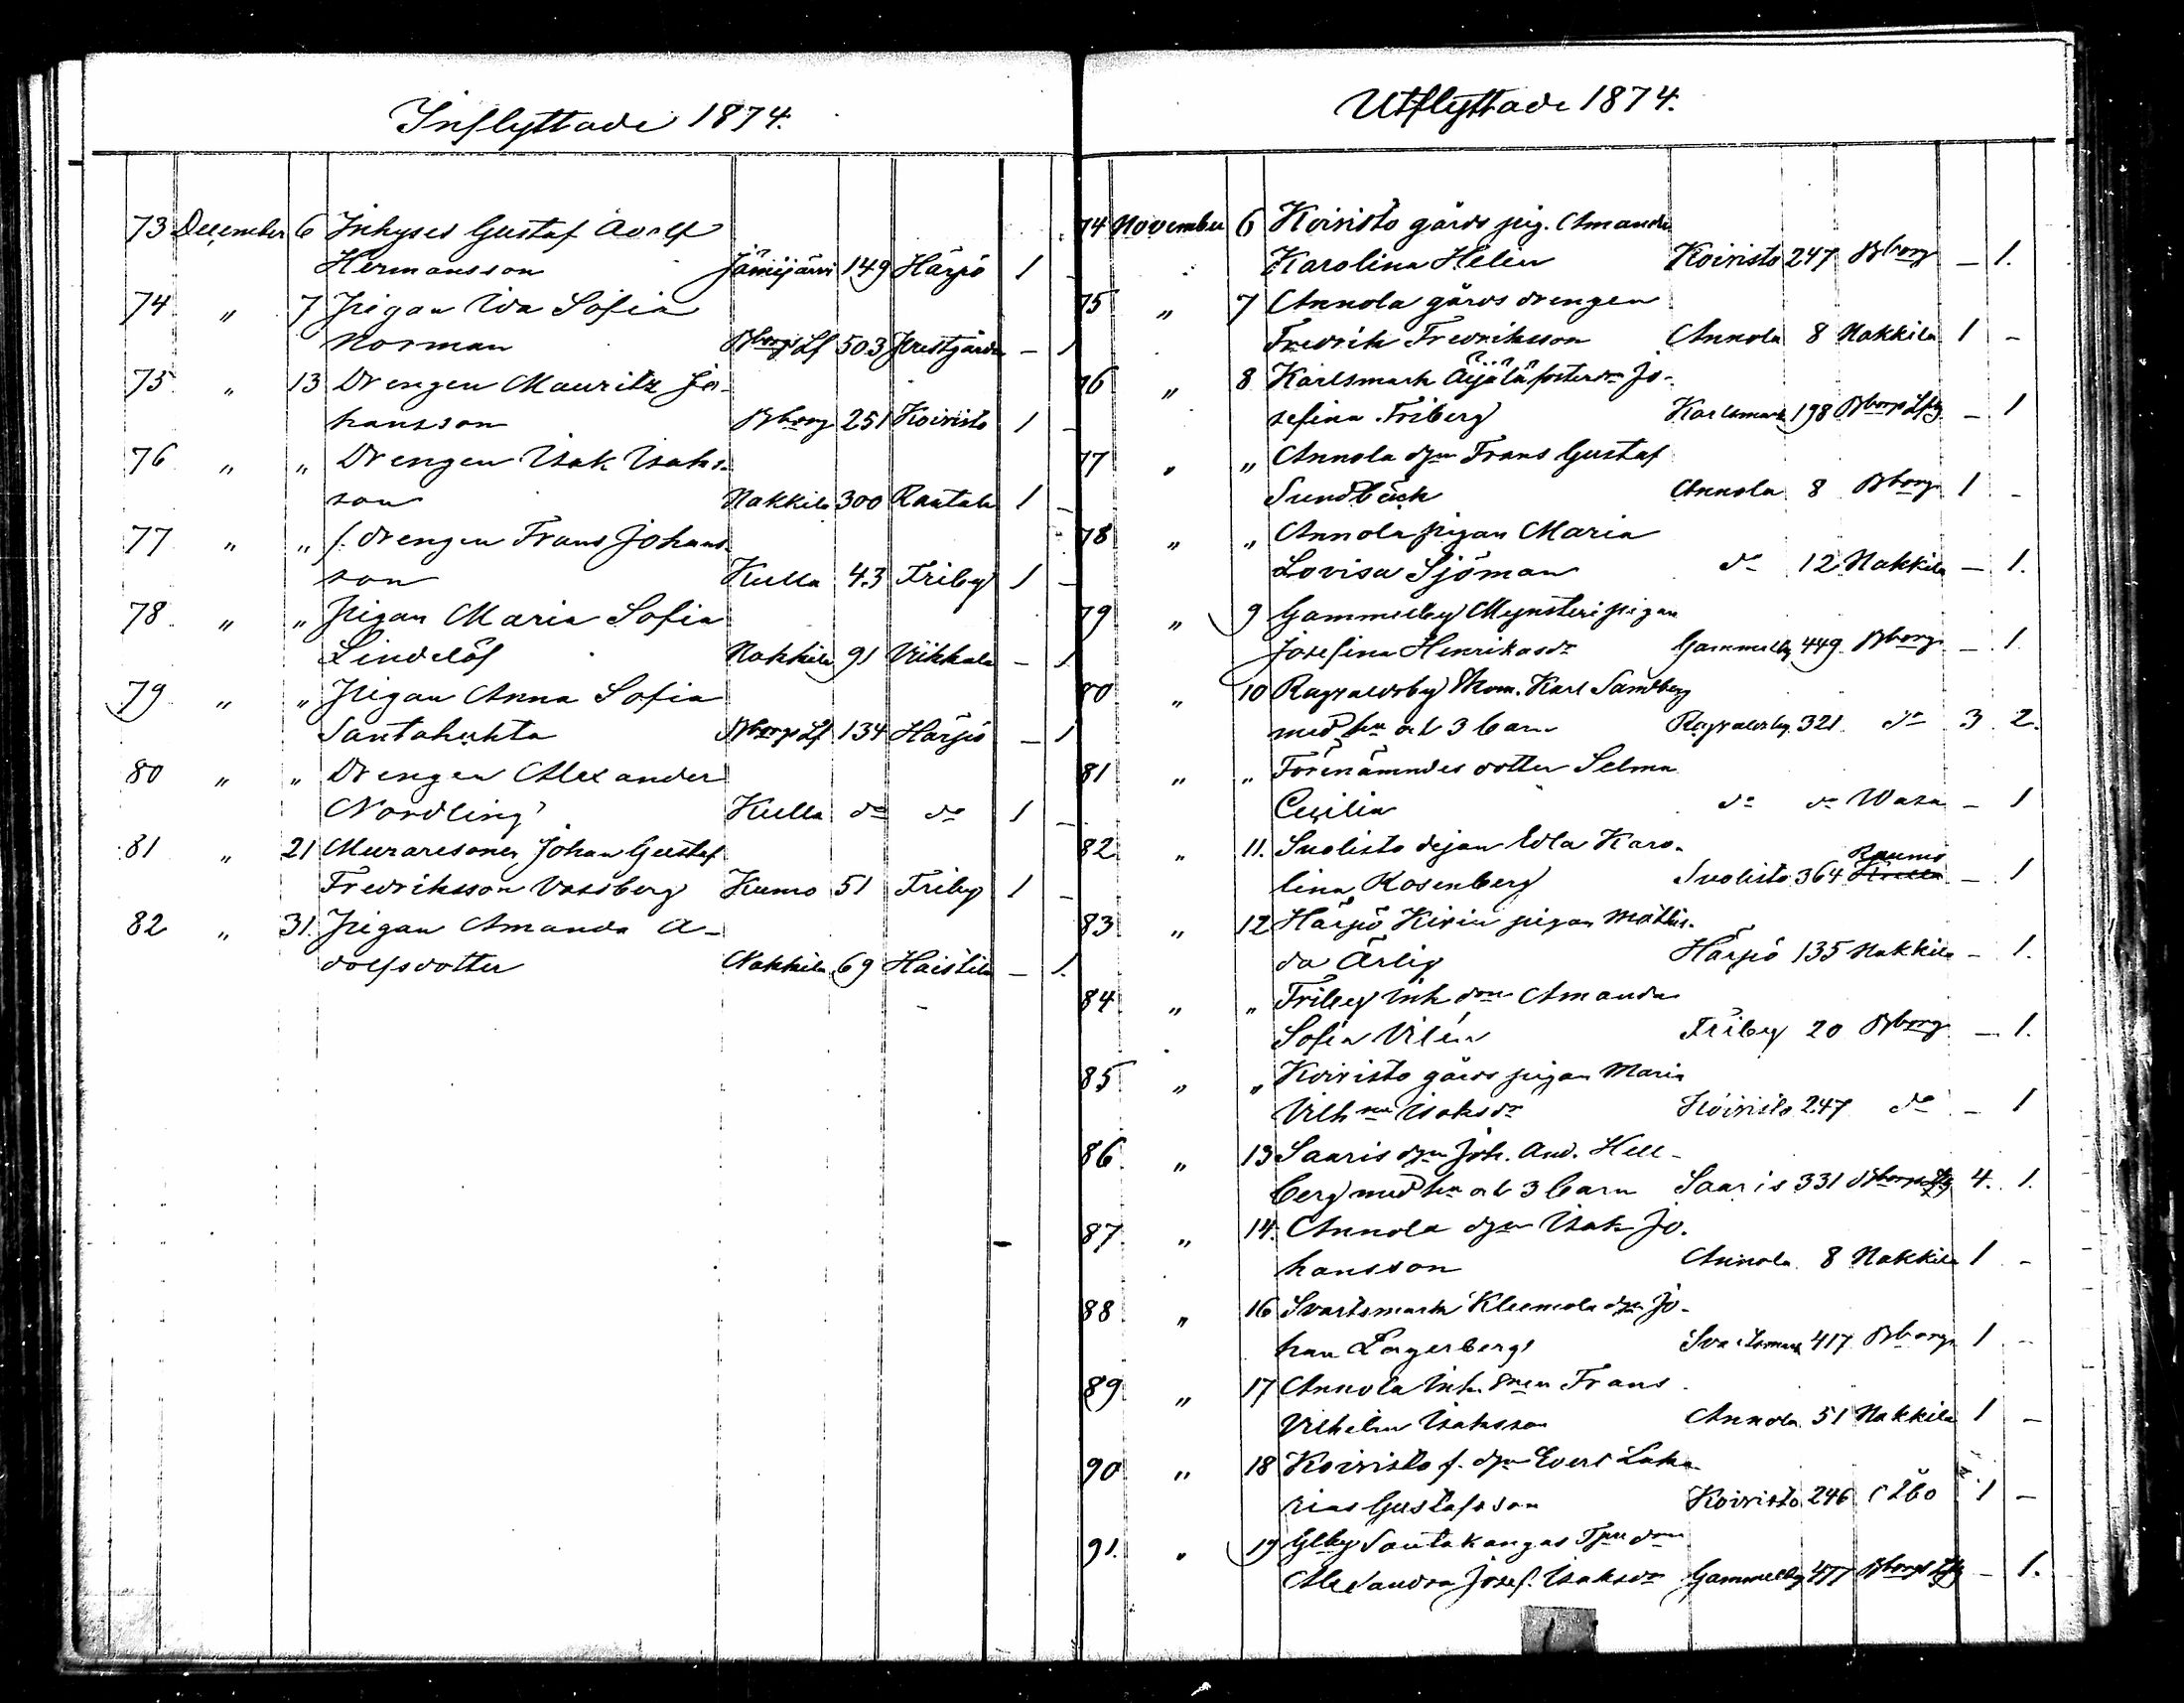 Inflyttade 1874.
73 December 6 Inhyses Gustaf Adolf
Hermansson Jämijärvi 149 Härpö 1 -
74 " 7 Pigan Ida Sofia
Norman Bborgs Lf 503 Prestgården - 1
75 " 13 Drengen Mauritz Jo-
hansson Bborg 251 Koivisto 1 -
76 " " Drengen Isak Isaks-
son Nakkila 300 Rantala 1 -
77 " " f. drengen Frans Johans-
son Kulla 43 Friby 1 -
78 " " Pigan Maria Sofia
Lindelöf Nakkila 91 Viikkala - 1
79 " " Pigan Anna Sofia
Santahuhta Bborgs Lf 134 Härpö - 1
80 " " Drengen Alexander
Nordling Kulla do do 1 -
81 " 21 Muraresonen Johan Gustaf
Fredriksson Vassberg Kumo 51 Friby 1 -
82 " 31. Pigan Amanda A-
dolfsdotter Nakkila 69 Haistila - 1.
Utflyttade 1874.
74 November 6 Koivisto gårds pig. Amanda
Karolina Helen Koivisto 247 Bborg - 1.
75 " 7 Annola gårds drengen
Fredrik Fredriksson Annola 8 Nakkila 1 -
76 " 8 Karlsmark Äijälä fosterdr Jo-
sefina Friberg Karlsmark 198 Bborgs Lfg - 1
77 " " Annola dgn Frans Gustaf
Sundbäck Annola 8 Bborg 1 -
78 " " Annola pigan Maria
Lovisa Sjöman do 12 Nakkila - 1.
79 " 9 Gammelby Mynsteri pigan
Josefina Henriksdr Gammelby 449 Bborg - 1.
80 " 10 Ragvaldsby Karl Sandberg
med hu och 3 barn Ragvaldsby 321 do 3 2.
81 " " Förenämndes dotter Selma
Cecilia do do Wasa - 1
82 " 11. Suolisto dejan Edla Karo-
Raumo
lina Rosenberg Suolisto 364 Kulla - 1
83 " 12 Härpö Kivin pigan Mathil-
da Ärlig Härpö 135 Nakkila - 1.
84 " " Friby Inh don Amanda
Sofia Vilén Friby 20 Bborg - 1.
85 " " Koivisto gårds pigan Maria
Vilhna Isaksdr Koivisto 247 do - 1
86 " 13 Saaris dgn Joh. And. Hell-
berg med hu och 3 barn Saaris 331 Bborgs Lfg 4. 1.
87 " 14. Annola dgn Isak Jo-
hansson Annola 8 Nakkila 1 -
88 " 16 Svartsmark Kleemola dgn Jo-
han Lagerberg Svartsmark 417 Bborg 1 -
89 " 17 Annola Inh. Frans
Vilhelm Isaksson Annola 51 Nakkila 1 -
90 " 18 Koivisto f. dgn Evert Saka-
rias Gustafsson Koivisto 246 Åbo 1 -
91. " 19 Glby Santakangas don
Alexandra Josef. Isaksdr Gammelby 477 Bborgs Lfg - 1.